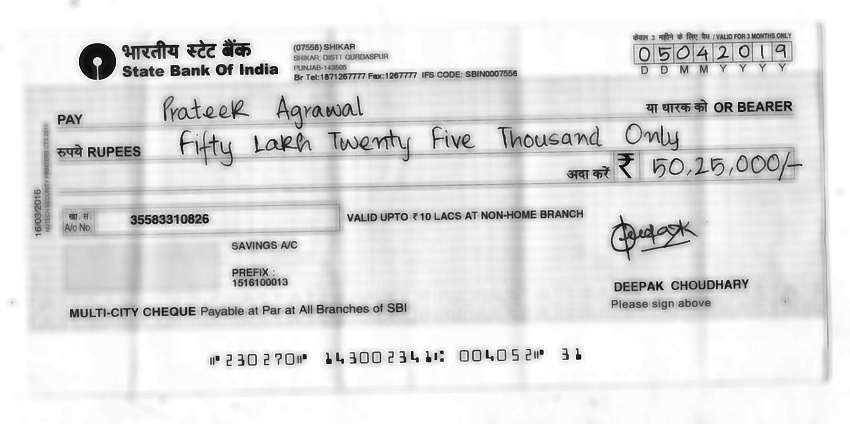 भारतीय स्टेट बैंक
State Bank Of India
(07556) SHIKAR
SHIKAR, DISTT GURDASPUR
PUNJAB-143505
Br Tel:1871267777 Fax:1267777 IFS CODE: SBIN0007556
केवल 3 महीने के लिए वैध / VALID FOR 3 MONTHS ONLY
05042019
D D M M Y Y Y Y
PAY Prateek Agrawal या धारक को OR BEARER
रुपये RUPEES Fifty Lakh Twenty Five Thousand Only
अदा करें ₹ 50,25,000/-
16/03/2016
खा. सं. A/c No. 35583310826
VALID UPTO ₹ 10 LACS AT NON-HOME BRANCH
Deepak
SAVINGS A/C
PREFIX :
1516100013
DEEPAK CHOUDHARY
Please sign above
MULTI-CITY CHEQUE Payable at Par at All Branches of SBI
⑈230270⑈ 143002341⑆ 004052⑈ 31